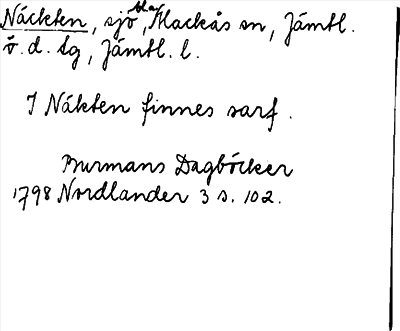 Näckten, sjö, bl. a. Klackås sn, Jämtl.
ö. d. tg, Jämtl. l.
I Näkten finnes sarf.
Burmans Dagböcker
1798 Nordlander 3 s. 102.